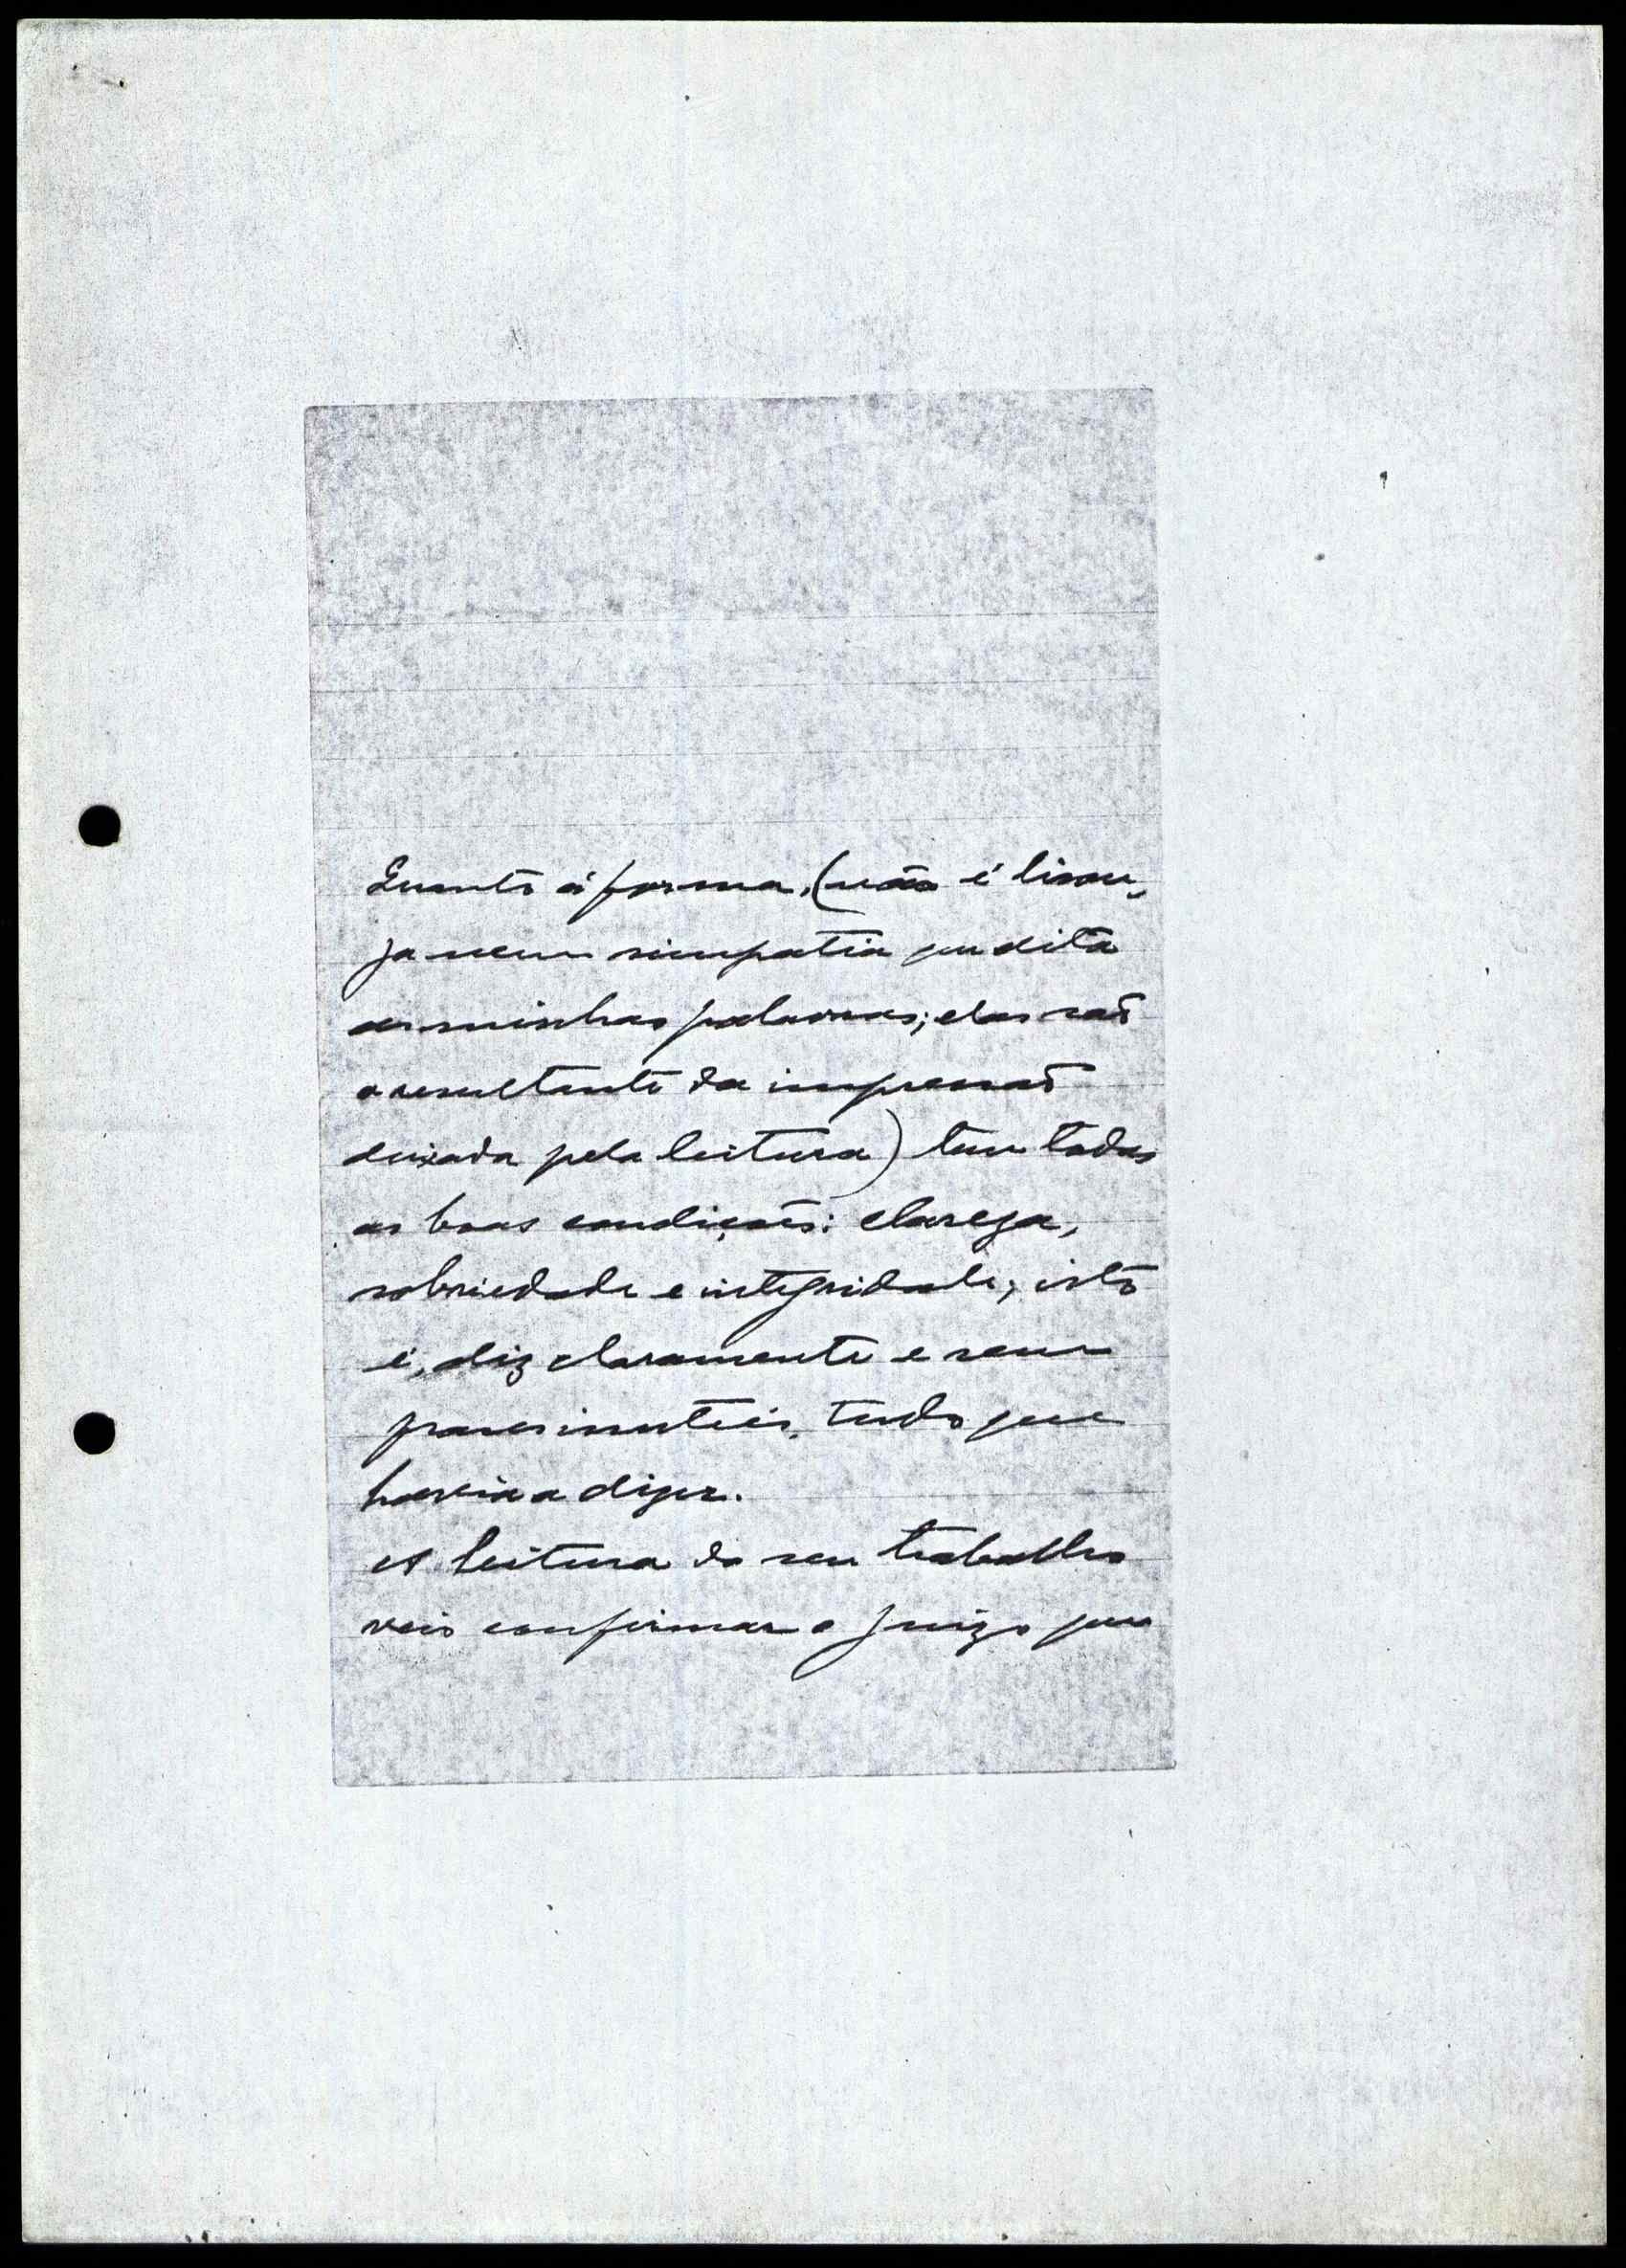 Quanto á forma, (não é lison-
ja nem simpatia que dita
as minhas palavras; elas saõ
a resultante da impressaõ
deixada pela leitura) tem todas
as boas condições: clareza,
sobriedade e integridade; isto
é, diz claramente e sem
frases inuteis, tudo que
havia a dizer.
A leitura do seu trabalho
veio confirmar o juizo que